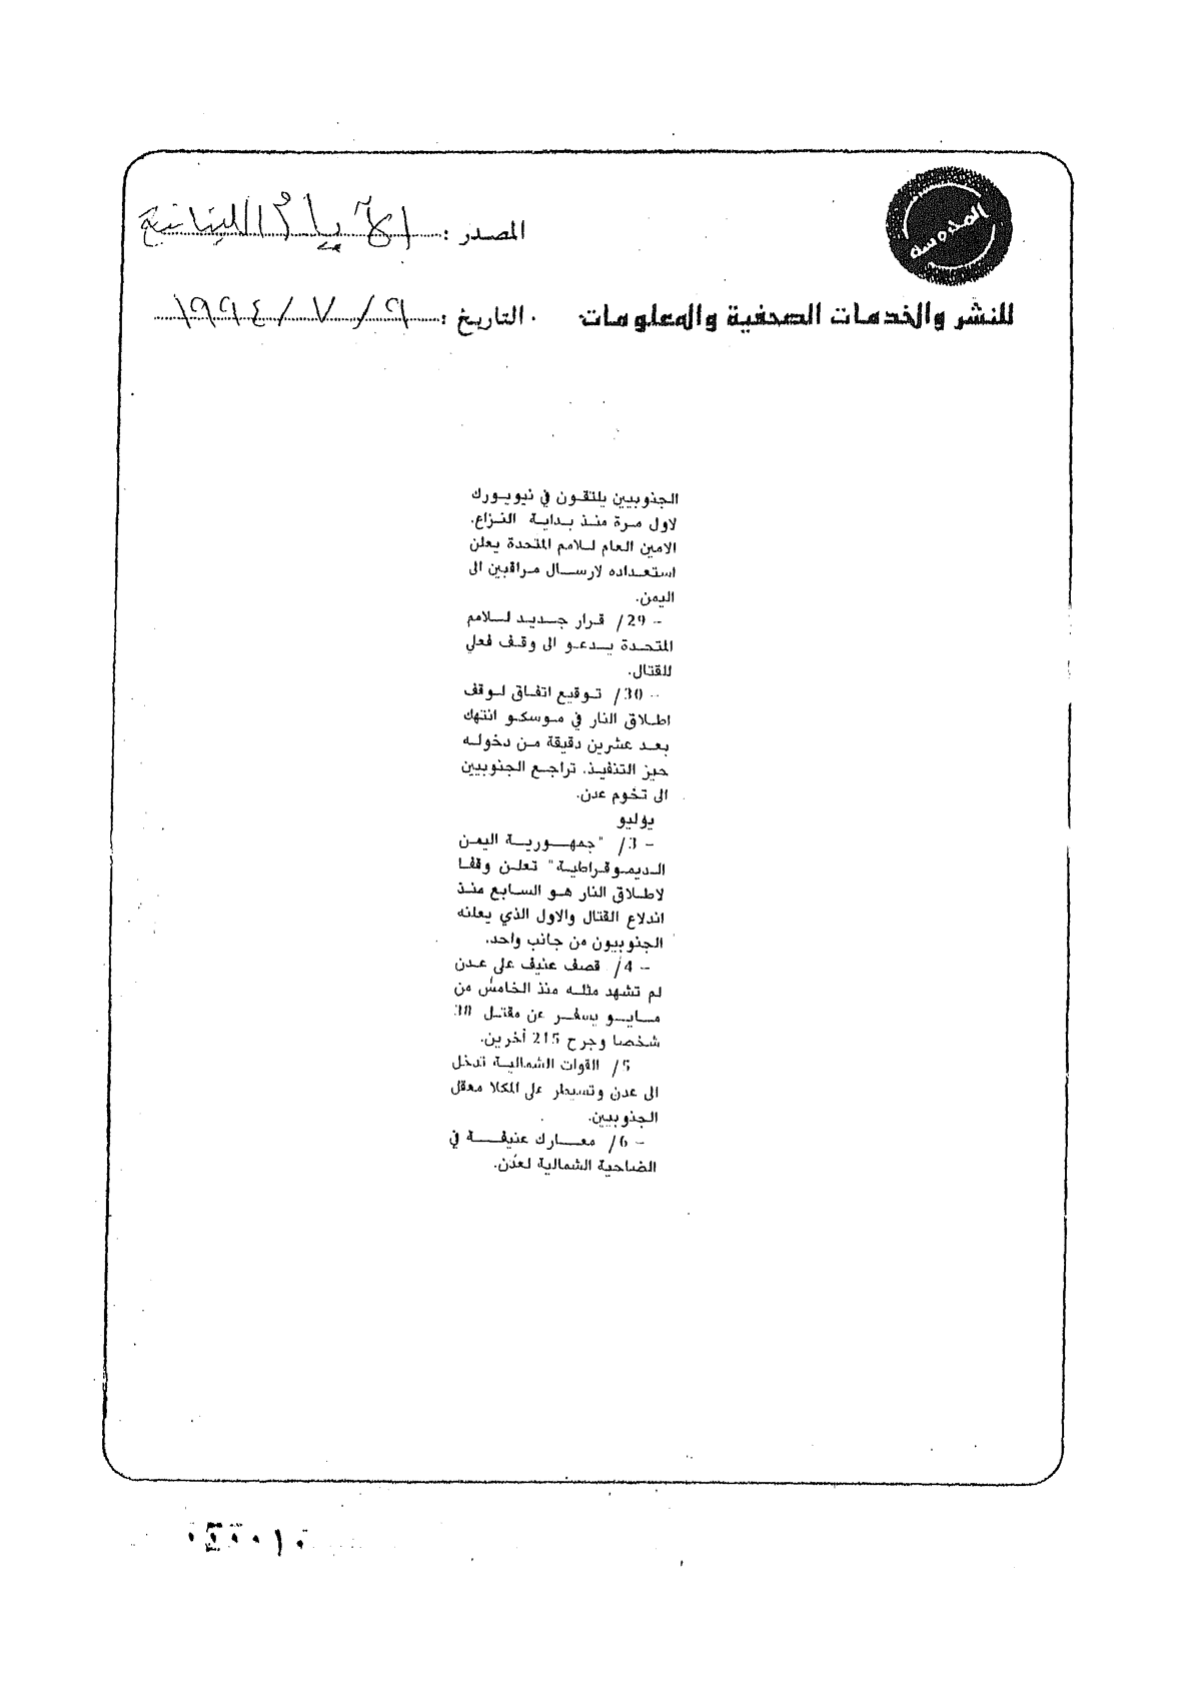 المصدر : الأيام اللبنانية
للنشر والخدمات الصحفية والمعلومات
التاريخ : ٩ / ٧ / ١٩٩٤
الجنوبيين يلتقون في نيويورك
لاول مرة منذ بداية النزاع.
الامين العام للامم المتحدة يعلن
استعداده لارسال مراقبين الى
اليمن.
- 29/ قرار جديد للامم
المتحدة يدعو الى وقف فعلي
للقتال.
- 30/ توقيع اتفاق لوقف
اطلاق النار في موسكو انتهك
بعد عشرين دقيقة من دخوله
حيز التنفيذ. تراجع الجنوبيين
الى تخوم عدن.
يوليو
- 3/ "جمهورية اليمن
الديموقراطية" تعلن وقفا
لاطلاق النار هو السابع منذ
اندلاع القتال والاول الذي يعلنه
الجنوبيون من جانب واحد.
- 4/ قصف عنيف على عدن
لم تشهد مثله منذ الخامس من
مايو يسفر عن مقتل 38
شخصا وجرح 215 أخرين.
5/ القوات الشمالية تدخل
الى عدن وتسيطر على المكلا معقل
الجنوبيين.
- 6/ معارك عنيفة في
الضاحية الشمالية لعدن.